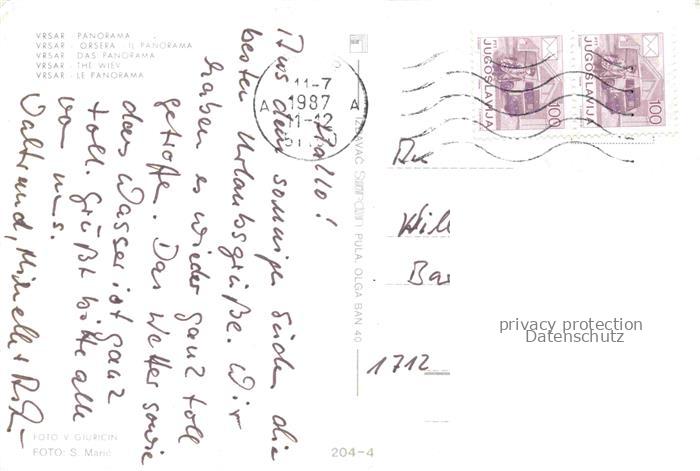 VRSAR - PANORAMA
VRSAR - ORSERA - IL PANORAMA
VRSAR - DAS PANORAMA
VRSAR - THE WIEV
VRSAR - LE PANORAMA
Hallo!
Aus dem sonnigen Süden die
besten Urlaubsgrüße. Wir
haben es wieder ganz toll
getroffen. Das Wetter sowie
das Wasser ist ganz
toll. Grüßt bitte alle
von uns.
Waltraud, Michelle +
FOTO V GIURICIN
FOTO: S. Marić
204-4
IZDAVAČ PULA, OLGA BAN 40
11-7
1987
11-12
A A
PTT JUGOSLAVIJA 100
PTT JUGOSLAVIJA 100
An
1712
privacy protection
Datenschutz